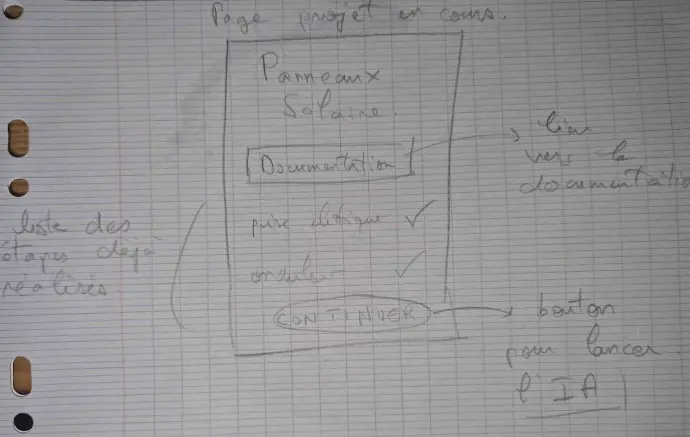 Page projet en cours.
Panneaux
Solaire.
Documentation
lien
vers la
documentation
liste des
étapes déjà
réalisés
✓
onduleur ✓
CONTINUER
bouton
pour lancer
l'IA